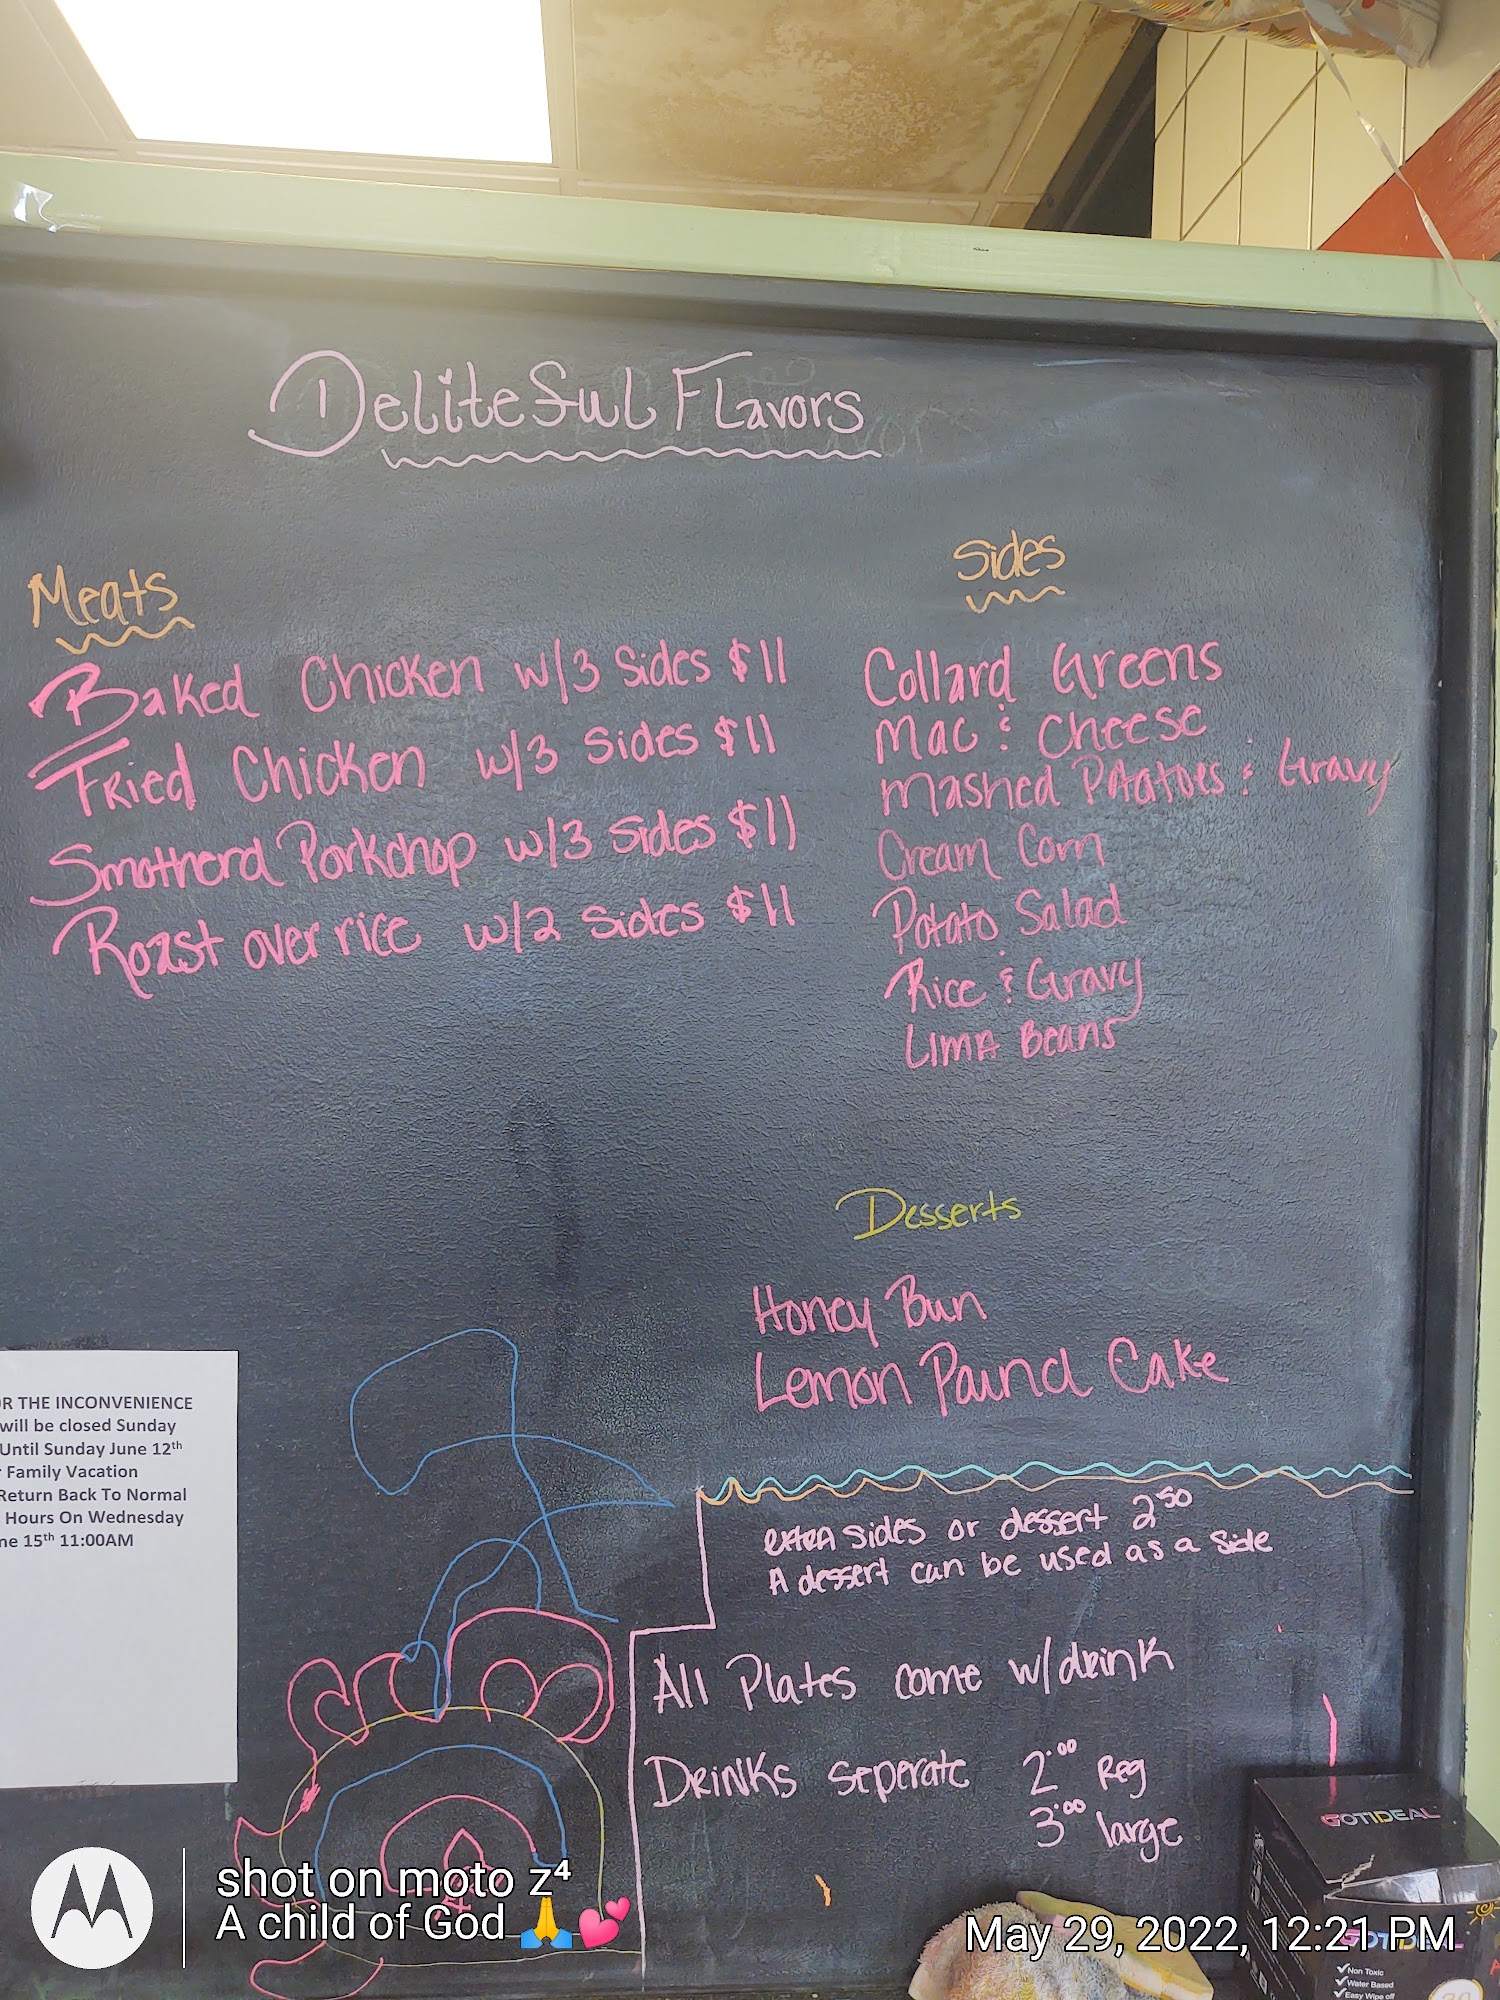 Deliteful Flavors
Meats
Baked Chicken w/3 Sides $11
Fried Chicken w/3 Sides $11
Smotherd Porkchop w/3 Sides $11
Roast over rice w/2 Sides $11
Sides
Collard Greens
Mac & Cheese
Mashed Potatoes & Gravy
Cream Corn
Potato Salad
Rice & Gravy
Lima Beans
Desserts
Honey Bun
Lemon Pound Cake
extra sides or dessert 2.50
A dessert can be used as a side
All Plates come w/drink
Drinks seperate 2.00 Reg
3.00 large
R THE INCONVENIENCE
will be closed Sunday
Until Sunday June 12th
Family Vacation
Return Back To Normal
Hours On Wednesday
ne 15th 11:00AM
GOTIDEAL
GOTIDEAL
Non Toxic
Water Based
Easy Wipe off
shot on moto z⁴
A child of God 🙏💕
May 29, 2022, 12:21 PM